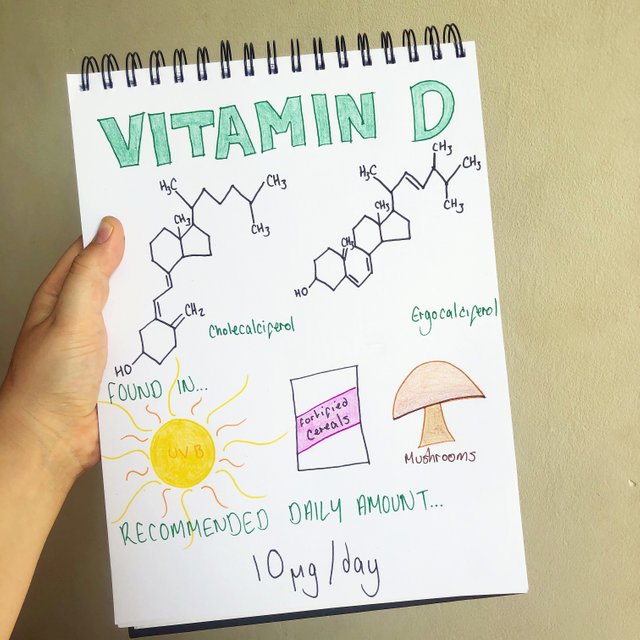 VITAMIN D
H₃C
CH₃
CH₃
CH₃
CH₂
HO
Cholecalciferol
H₃C
CH₃
CH₃
CH₃
CH₃
CH₃
HO
Ergocalciferol
FOUND IN...
UVB
Fortified
Cereals
Mushrooms
RECOMMENDED DAILY AMOUNT...
10 µg/day